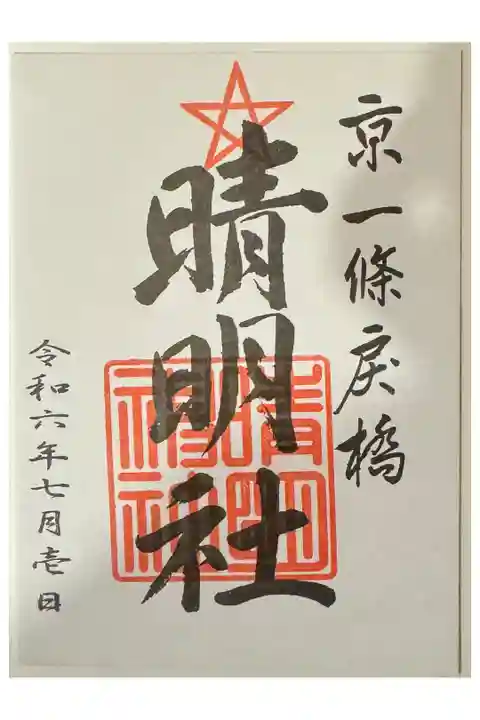 京一條戻橋
晴明社
晴明神社
令和六年七月壱日